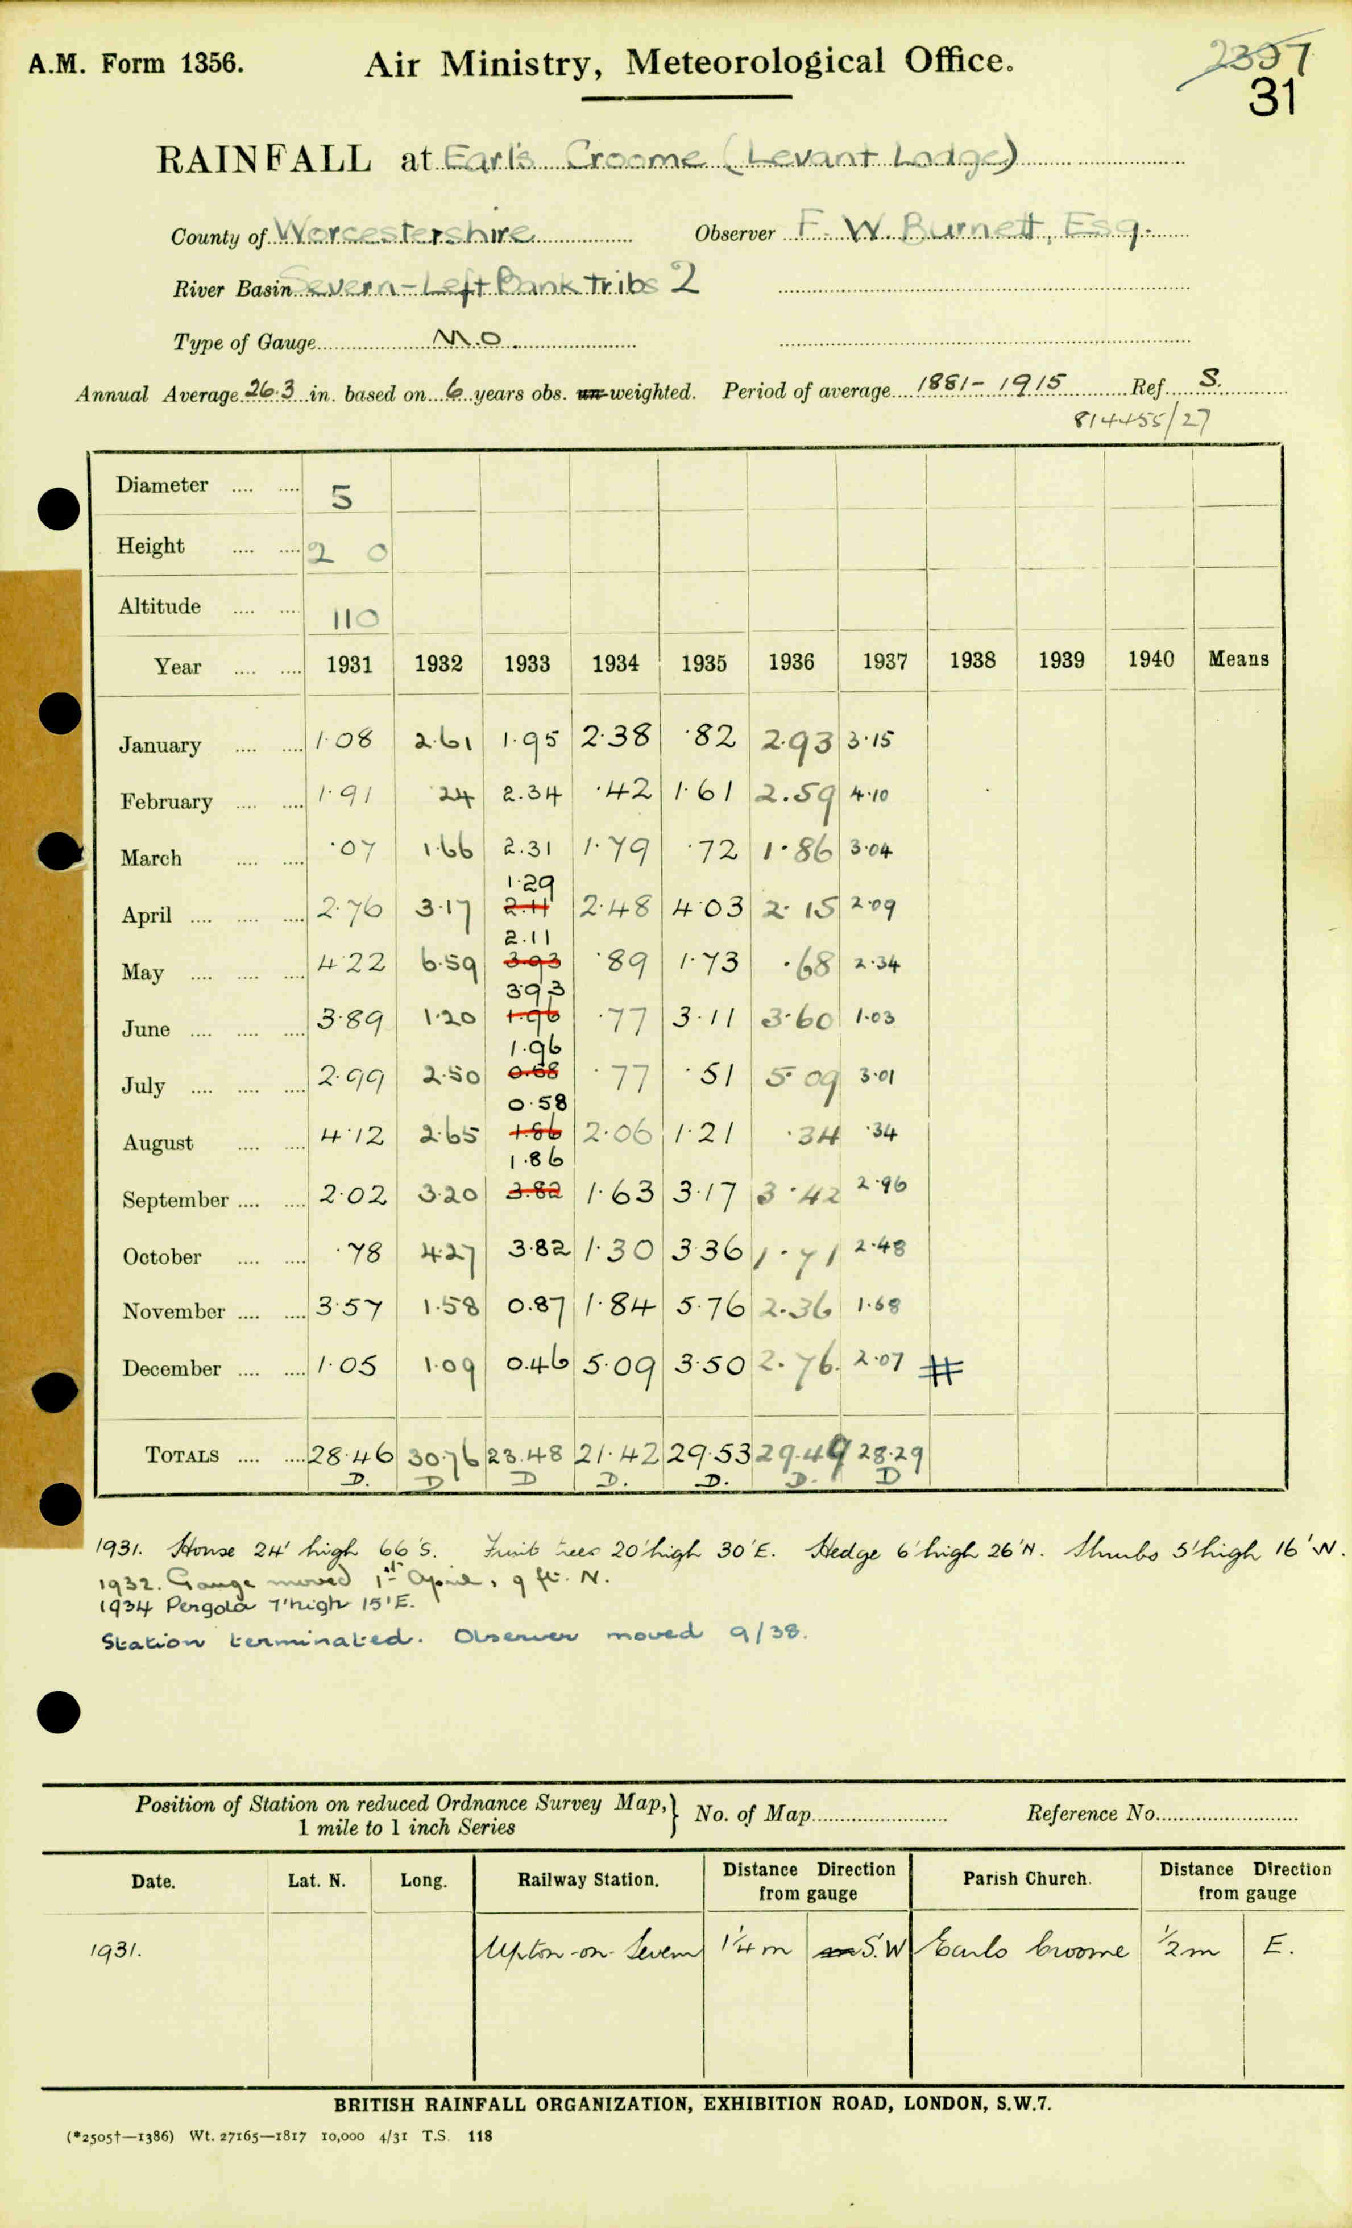 A.M. Form 1356. Air Ministry, Meteorological Office. 2397
31
RAINFALL at Earl's Croome (Levant Lodge)
County of Worcestershire Observer F. W. Burnett, Esq.
River Basin Severn-Left Bank tribs 2
Type of Gauge M.O.
Annual Average 26.3 in. based on 6 years obs. un-weighted. Period of average 1881-1915 Ref. S.
814455/27
Diameter 5
Height 2 0
Altitude 110
Year 1931 1932 1933 1934 1935 1936 1937 1938 1939 1940 Means
January 1.08 2.61 1.95 2.38 .82 2.93 3.15
February 1.91 .24 2.34 .42 1.61 2.59 4.10
March .07 1.66 2.31 1.79 .72 1.86 3.04
1.29
April 2.76 3.17 2.11 2.48 4.03 2.15 2.09
2.11
May 4.22 6.59 3.93 .89 1.73 .68 2.34
3.93
June 3.89 1.20 1.96 .77 3.11 3.60 1.03
1.96
July 2.99 2.50 0.58 .77 .51 5.09 3.01
0.58
August 4.12 2.65 1.86 2.06 1.21 .34 .34
1.86
September 2.02 3.20 3.82 1.63 3.17 3.42 2.96
October .78 4.27 3.82 1.30 3.36 1.71 2.48
November 3.57 1.58 0.87 1.84 5.76 2.36 1.68
December 1.05 1.09 0.46 5.09 3.50 2.76 2.07 #
TOTALS 28.46 30.76 23.48 21.42 29.53 29.49 28.29
D. D D D. D. D. D
1931. House 24' high 66'S. Fruit trees 20'high 30'E. Hedge 6'high 26'N. Shrubs 5'high 16'W.
1932. Gauge moved 1st April, 9 ft. N.
1934 Pergola 7'high 15'E.
Station terminated. Observer moved 9/38.
Position of Station on reduced Ordnance Survey Map, 1 mile to 1 inch Series } No. of Map Reference No.
Date. Lat. N. Long. Railway Station. Distance Direction from gauge Parish Church. Distance Direction from gauge
1931. Upton-on-Severn 1¼ m S.W Earls Croome ½ m E.
BRITISH RAINFALL ORGANIZATION, EXHIBITION ROAD, LONDON, S.W.7.
(*2505†—1386) Wt. 27165—1817 10,000 4/31 T.S. 118